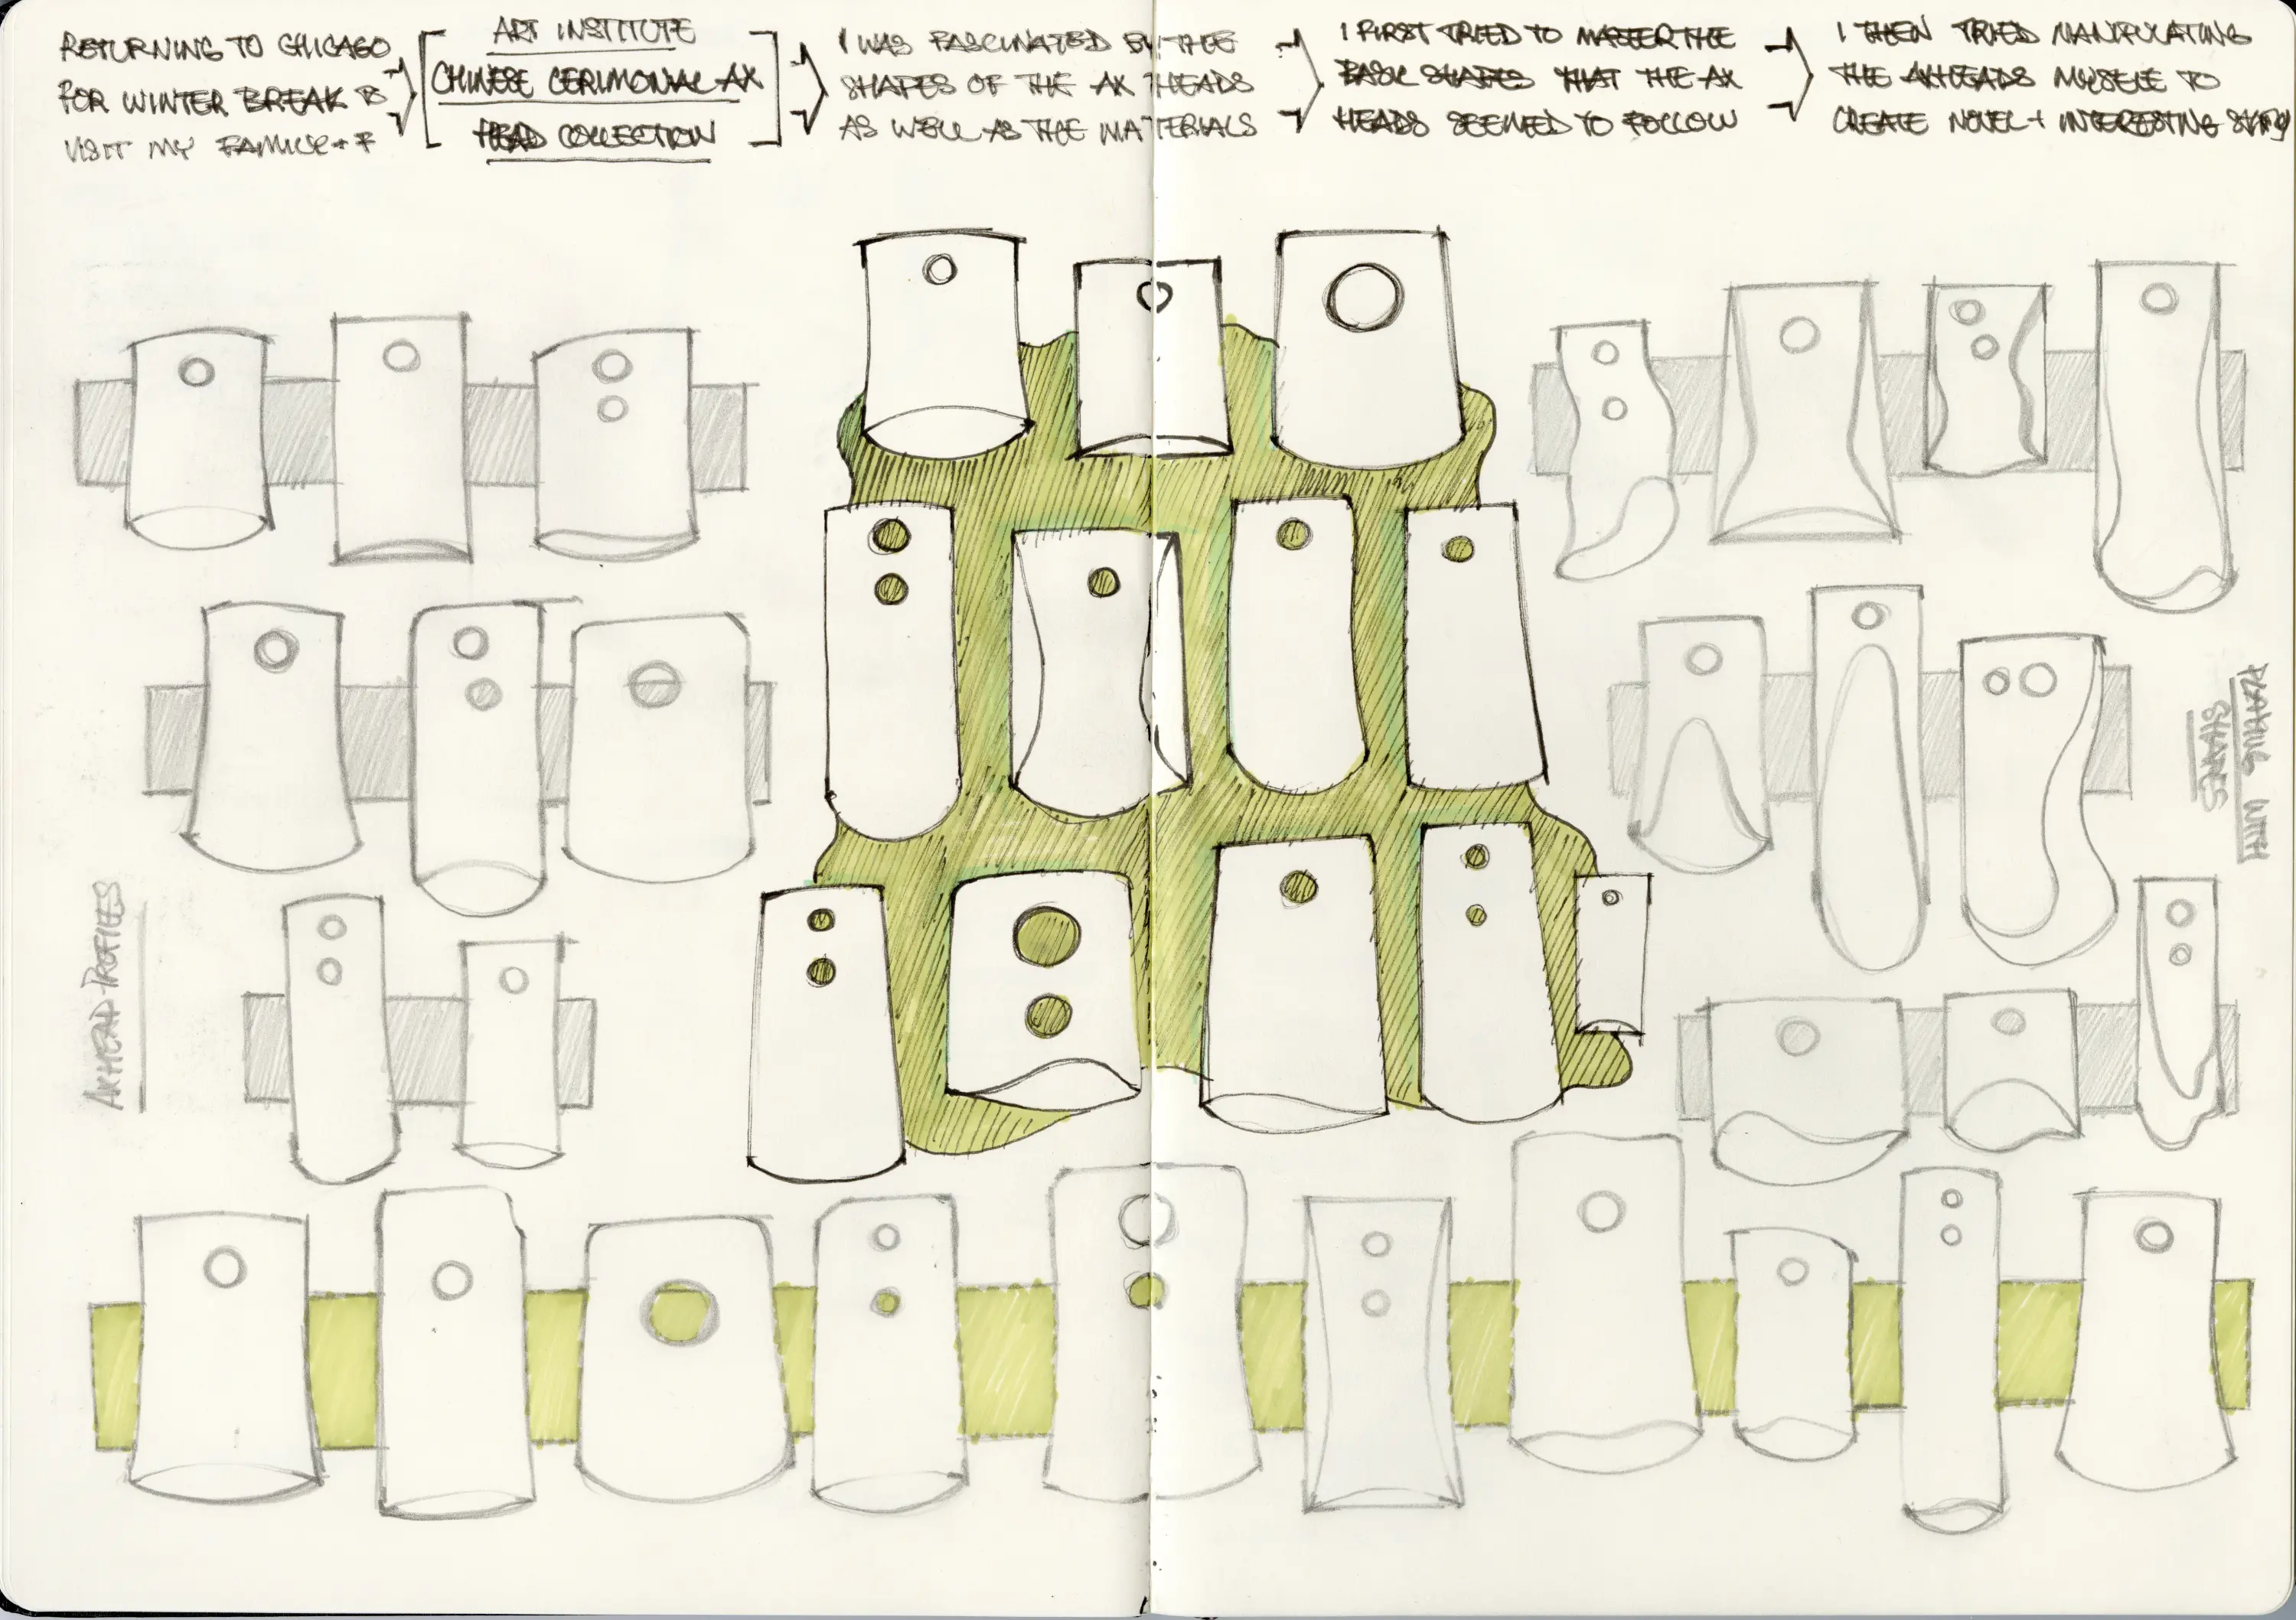 RETURNING TO CHICAGO
FOR WINTER BREAK TO
VISIT MY FAMILY + F
ART INSTITUTE
CHINESE CERIMONIAL AX
HEAD COLLECTION
I WAS FASCINATED BY THE
SHAPES OF THE AX HEADS
AS WELL AS THE MATERIALS
I FIRST TRIED TO MASTER THE
BASIC SHAPES THAT THE AX
HEADS SEEMED TO FOLLOW
I THEN TRIED MANIPULATING
THE AXHEADS MYSELF TO
CREATE NOVEL + INTERESTING
AXHEAD PROFILES
PLAYING WITH
SHAPES